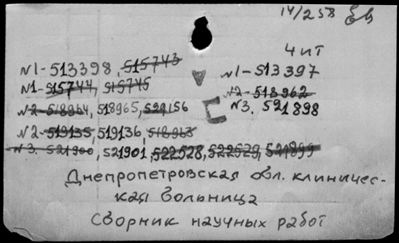 14/258
Чит
N1-513398, 515743
N1-513397
N1-515744, 515745
N2-518962
N2-518964, 518965, 529156
N3. 521898
N2-519135, 519136, 518963
N3. 521900, 521901, 522528, 522529, 521899
Днепропетровская обл. клиничес-
кая больница
Сборник научных работ